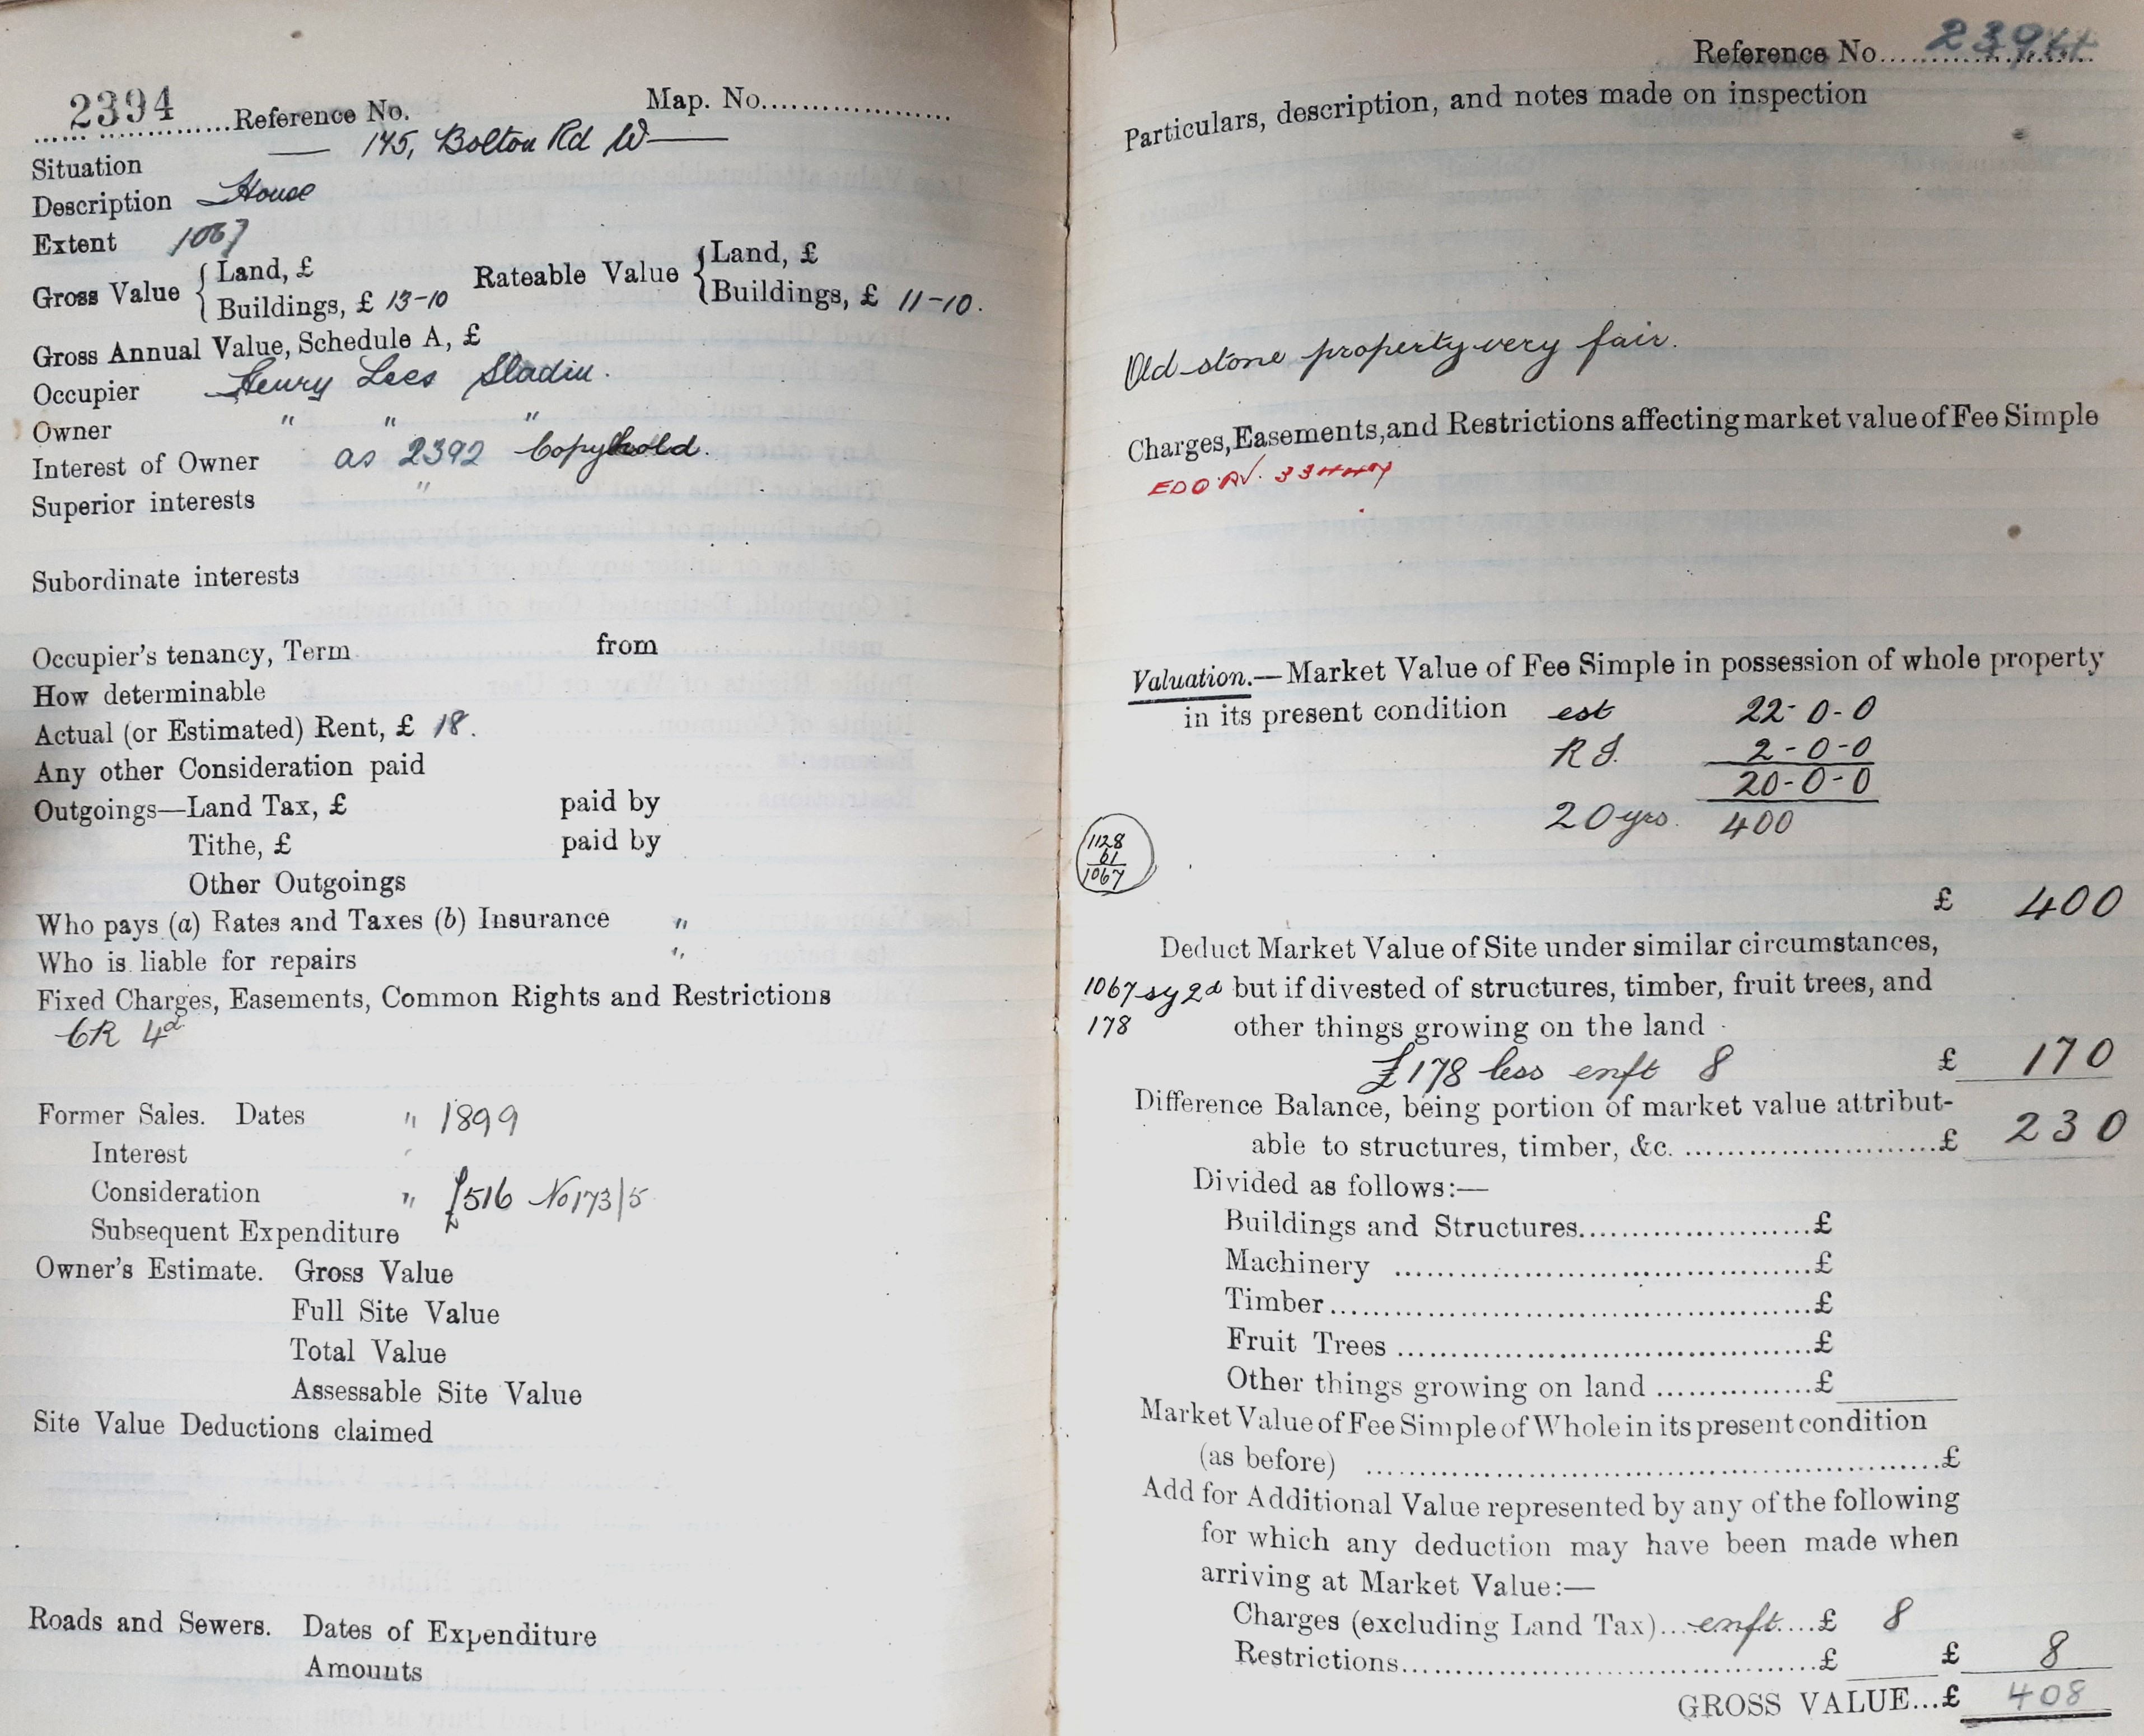 2394 Reference No. Map. No.
Situation 145, Bolton Rd W
Description House
Extent 1067
Gross Value { Land, £ Rateable Value { Land, £
Buildings, £ 13-10 Buildings, £ 11-10.
Gross Annual Value, Schedule A, £
Occupier Henry Lees Sladin.
Owner " " "
Interest of Owner as 2392 Copyhold.
Superior interests "
Subordinate interests
Occupier's tenancy, Term from
How determinable
Actual (or Estimated) Rent, £ 18.
Any other Consideration paid
Outgoings—Land Tax, £ paid by
Tithe, £ paid by
Other Outgoings
Who pays (a) Rates and Taxes (b) Insurance "
Who is liable for repairs "
Fixed Charges, Easements, Common Rights and Restrictions
CR 4d
Former Sales. Dates " 1899
Interest
Consideration " £516 No 173/5
Subsequent Expenditure
Owner's Estimate. Gross Value
Full Site Value
Total Value
Assessable Site Value
Site Value Deductions claimed
Roads and Sewers. Dates of Expenditure
Amounts
Reference No. 2394
Particulars, description, and notes made on inspection
Old stone property very fair.
Charges, Easements, and Restrictions affecting market value of Fee Simple
Valuation.—Market Value of Fee Simple in possession of whole property
in its present condition est 22-0-0
2-0-0
20-0-0
20 yrs. 400
1128
61
1067
£ 400
Deduct Market Value of Site under similar circumstances,
1067 sy 2d but if divested of structures, timber, fruit trees, and
178 other things growing on the land
£178 less enft 8 £ 170
Difference Balance, being portion of market value attribut-
able to structures, timber, &c. £ 230
Divided as follows:—
Buildings and Structures £
Machinery £
Timber £
Fruit Trees £
Other things growing on land £
Market Value of Fee Simple of Whole in its present condition
(as before) £
Add for Additional Value represented by any of the following
for which any deduction may have been made when
arriving at Market Value:—
Charges (excluding Land Tax) enft £ 8
Restrictions £ £ 8
GROSS VALUE...£ 408